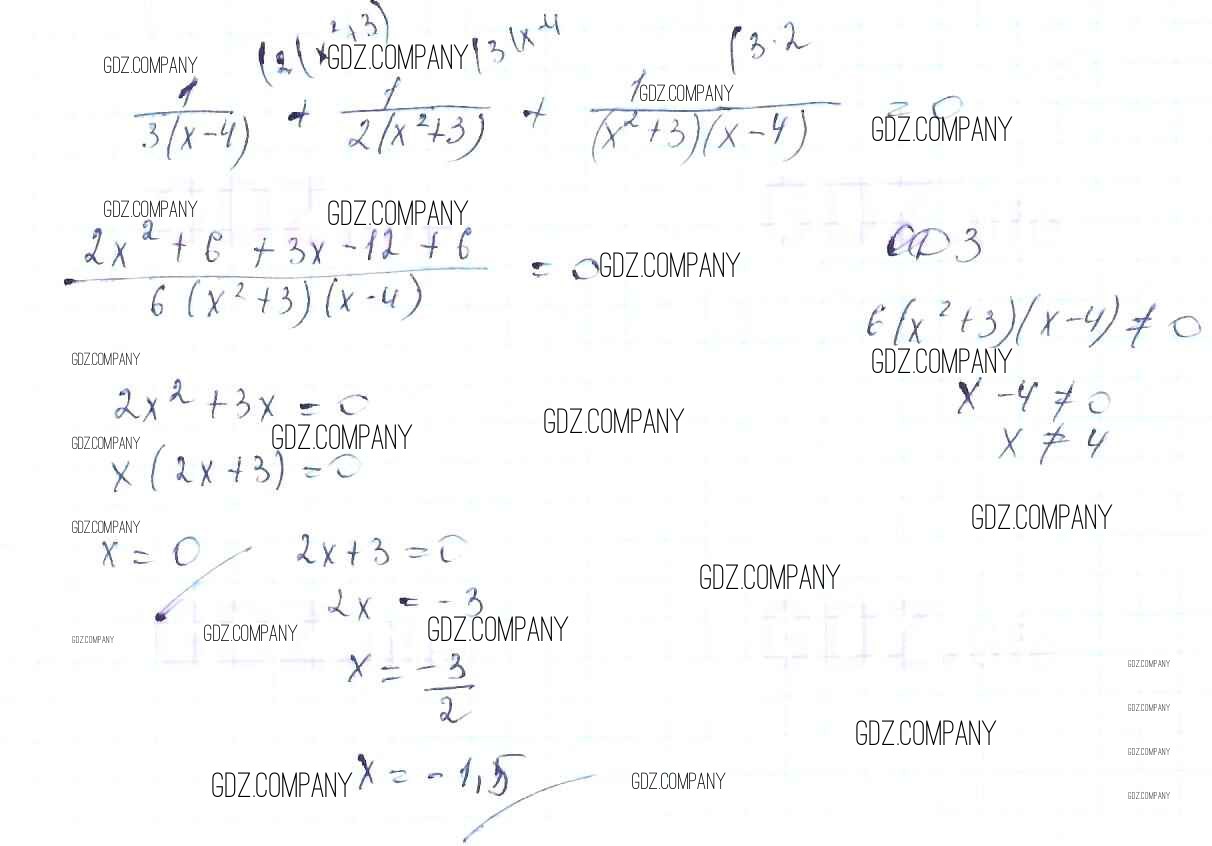 GDZ.COMPANY (2(x²+3) GDZ.COMPANY (3(x-4 (3·2
1/3(x-4) + 1/2(x²+3) + 1/(x²+3)(x-4) = 0 GDZ.COMPANY GDZ.COMPANY
GDZ.COMPANY GDZ.COMPANY
2x² + 6 + 3x - 12 + 6 / 6(x²+3)(x-4) = 0 GDZ.COMPANY ОДЗ
6(x²+3)(x-4) ≠ 0
GDZ.COMPANY GDZ.COMPANY
2x² + 3x = 0 x - 4 ≠ 0
GDZ.COMPANY GDZ.COMPANY GDZ.COMPANY x ≠ 4
x(2x+3) = 0
GDZ.COMPANY GDZ.COMPANY
x = 0 2x+3 = 0
GDZ.COMPANY
2x = -3
GDZ.COMPANY GDZ.COMPANY GDZ.COMPANY
x = -3/2 GDZ.COMPANY
GDZ.COMPANY
GDZ.COMPANY GDZ.COMPANY
GDZ.COMPANY x = -1,5 GDZ.COMPANY GDZ.COMPANY